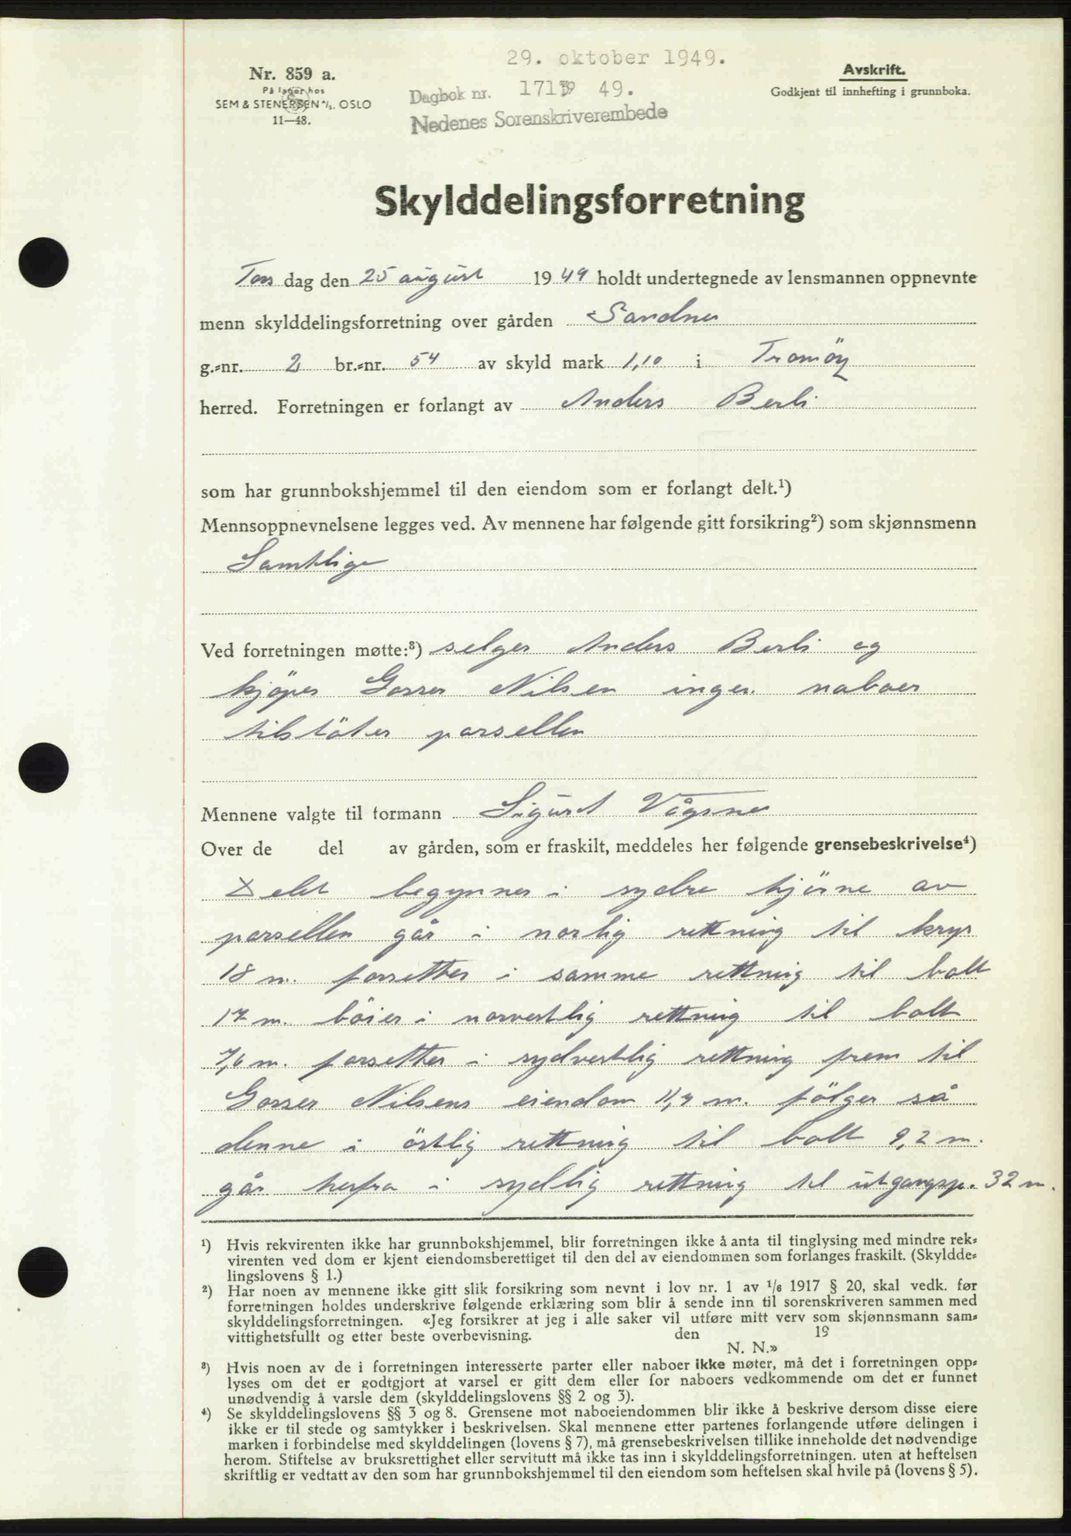 29. oktober 1949.
Nr. 859 a.
På lager hos
SEM & STENERSEN A/S. OSLO
11—48.
Dagbok nr. 1713 49.
Nedenes Sorenskriverembede
Avskrift.
Godkjent til innhefting i grunnboka.
Skylddelingsforretning
Tors dag den 25 august 1949 holdt undertegnede av lensmannen oppnevnte
menn skylddelingsforretning over gården Sandnes
g.-nr. 2 br.-nr. 54 av skyld mark 1,10 i Tromöy
herred. Forretningen er forlangt av Anders Berli
som har grunnbokshjemmel til den eiendom som er forlangt delt.¹)
Mennsoppnevnelsene legges ved. Av mennene har følgende gitt forsikring²) som skjønnsmenn
Samtlige
Ved forretningen møtte:³) selger Anders Berli og
kjöper Nilsen ingen naboer
tilstöter parsellen
Mennene valgte til formann Sigurd Vågsnes
Over de del av gården, som er fraskilt, meddeles her følgende grensebeskrivelse⁴)
delet begynner i sydre hjörne av
parsellen går i norlig rettning til krys
18 m. forsetter i samme rettning til bolt
17 m. böier i norvestlig rettning til bolt
7,6 m. forsetter i sydvestlig rettning frem til
Nilsens eiendom 11,4 m. fölger så
denne i östlig rettning til bolt 9,2 m.
går herfra i sydlig rettning til utgangsp. 32 m.
¹) Hvis rekvirenten ikke har grunnbokshjemmel, blir forretningen ikke å anta til tinglysing med mindre rek-
virenten ved dom er kjent eiendomsberettiget til den del av eiendommen som forlanges fraskilt. (Skyldde-
lingslovens § 1.)
²) Har noen av mennene ikke gitt slik forsikring som nevnt i lov nr. 1 av 1/6 1917 § 20, skal vedk. før
forretningen holdes underskrive følgende erklæring som blir å sende inn til sorenskriveren sammen med
skylddelingsforretningen. «Jeg forsikrer at jeg i alle saker vil utføre mitt verv som skjønnsmann sam-
vittighetsfullt og etter beste overbevisning. den 19
N. N.»
³) Hvis noen av de i forretningen interesserte parter eller naboer ikke møter, må det i forretningen opp-
lyses om det er godtgjort at varsel er gitt dem eller for naboers vedkommende om det er funnet
unødvendig å varsle dem (skylddelingslovens §§ 2 og 3).
⁴) Se skylddelingslovens §§ 3 og 8. Grensene mot naboeiendommen blir ikke å beskrive dersom disse eiere
ikke er til stede og samtykker i beskrivelsen. Skal mennene etter partenes forlangende utføre delingen i
marken i forbindelse med skylddelingen (lovens § 7), må grensebeskrivelsen tillike inneholde det nødvendige
herom. Stiftelse av bruksrettighet eller servitutt må ikke tas inn i skylddelingsforretningen. uten at heftelsen
skriftlig er vedtatt av den som har grunnbokshjemmel til den eiendom som heftelsen skal hvile på (lovens § 5).